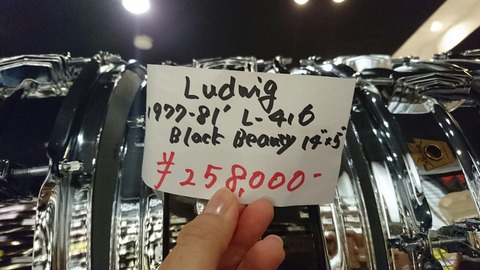 Ludwig
1977-81' L-416
Black Beauty 14"x5"
¥258,000-